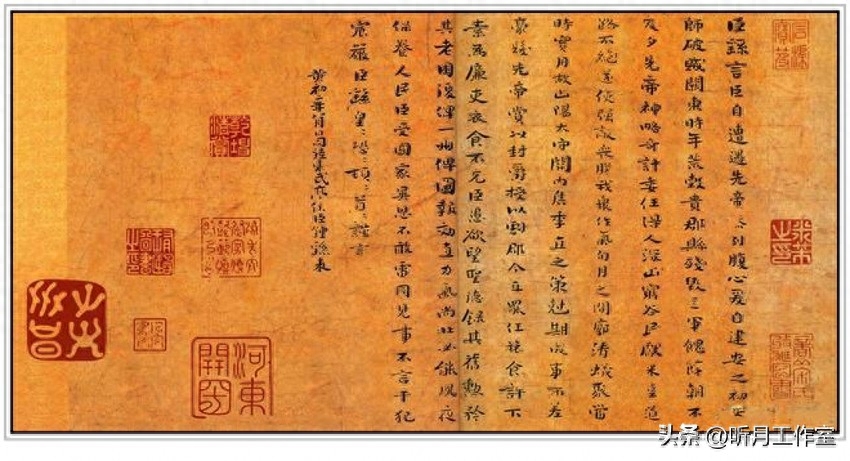 臣繇言臣自遭遇先帝忝列腹心爰自建安之初王
師破賊關東時年荒穀貴郡縣殘毀三軍餽饟朝不
及夕先帝神略奇計委任得人深山窮谷民獻米豆道
路不絕遂使強敵喪膽我衆作氣旬月之間廓清蟻聚當
時實用故山陽太守關內侯季直之策剋期成事不差
豪髮先帝賞以封爵授以劇郡今直罷任旅食許下
素為廉吏衣食不充臣愚欲望聖德錄其舊勳矜
其老困復俾一州俾圖報效直力氣尚壯必能夙夜
保養人民臣受國家異恩不敢雷同見事不言干犯
宸嚴臣繇皇〻恐〻頓〻首〻謹言
黃初二年八月日司徒東武亭侯臣鍾繇表
河東
头条@听月工作室